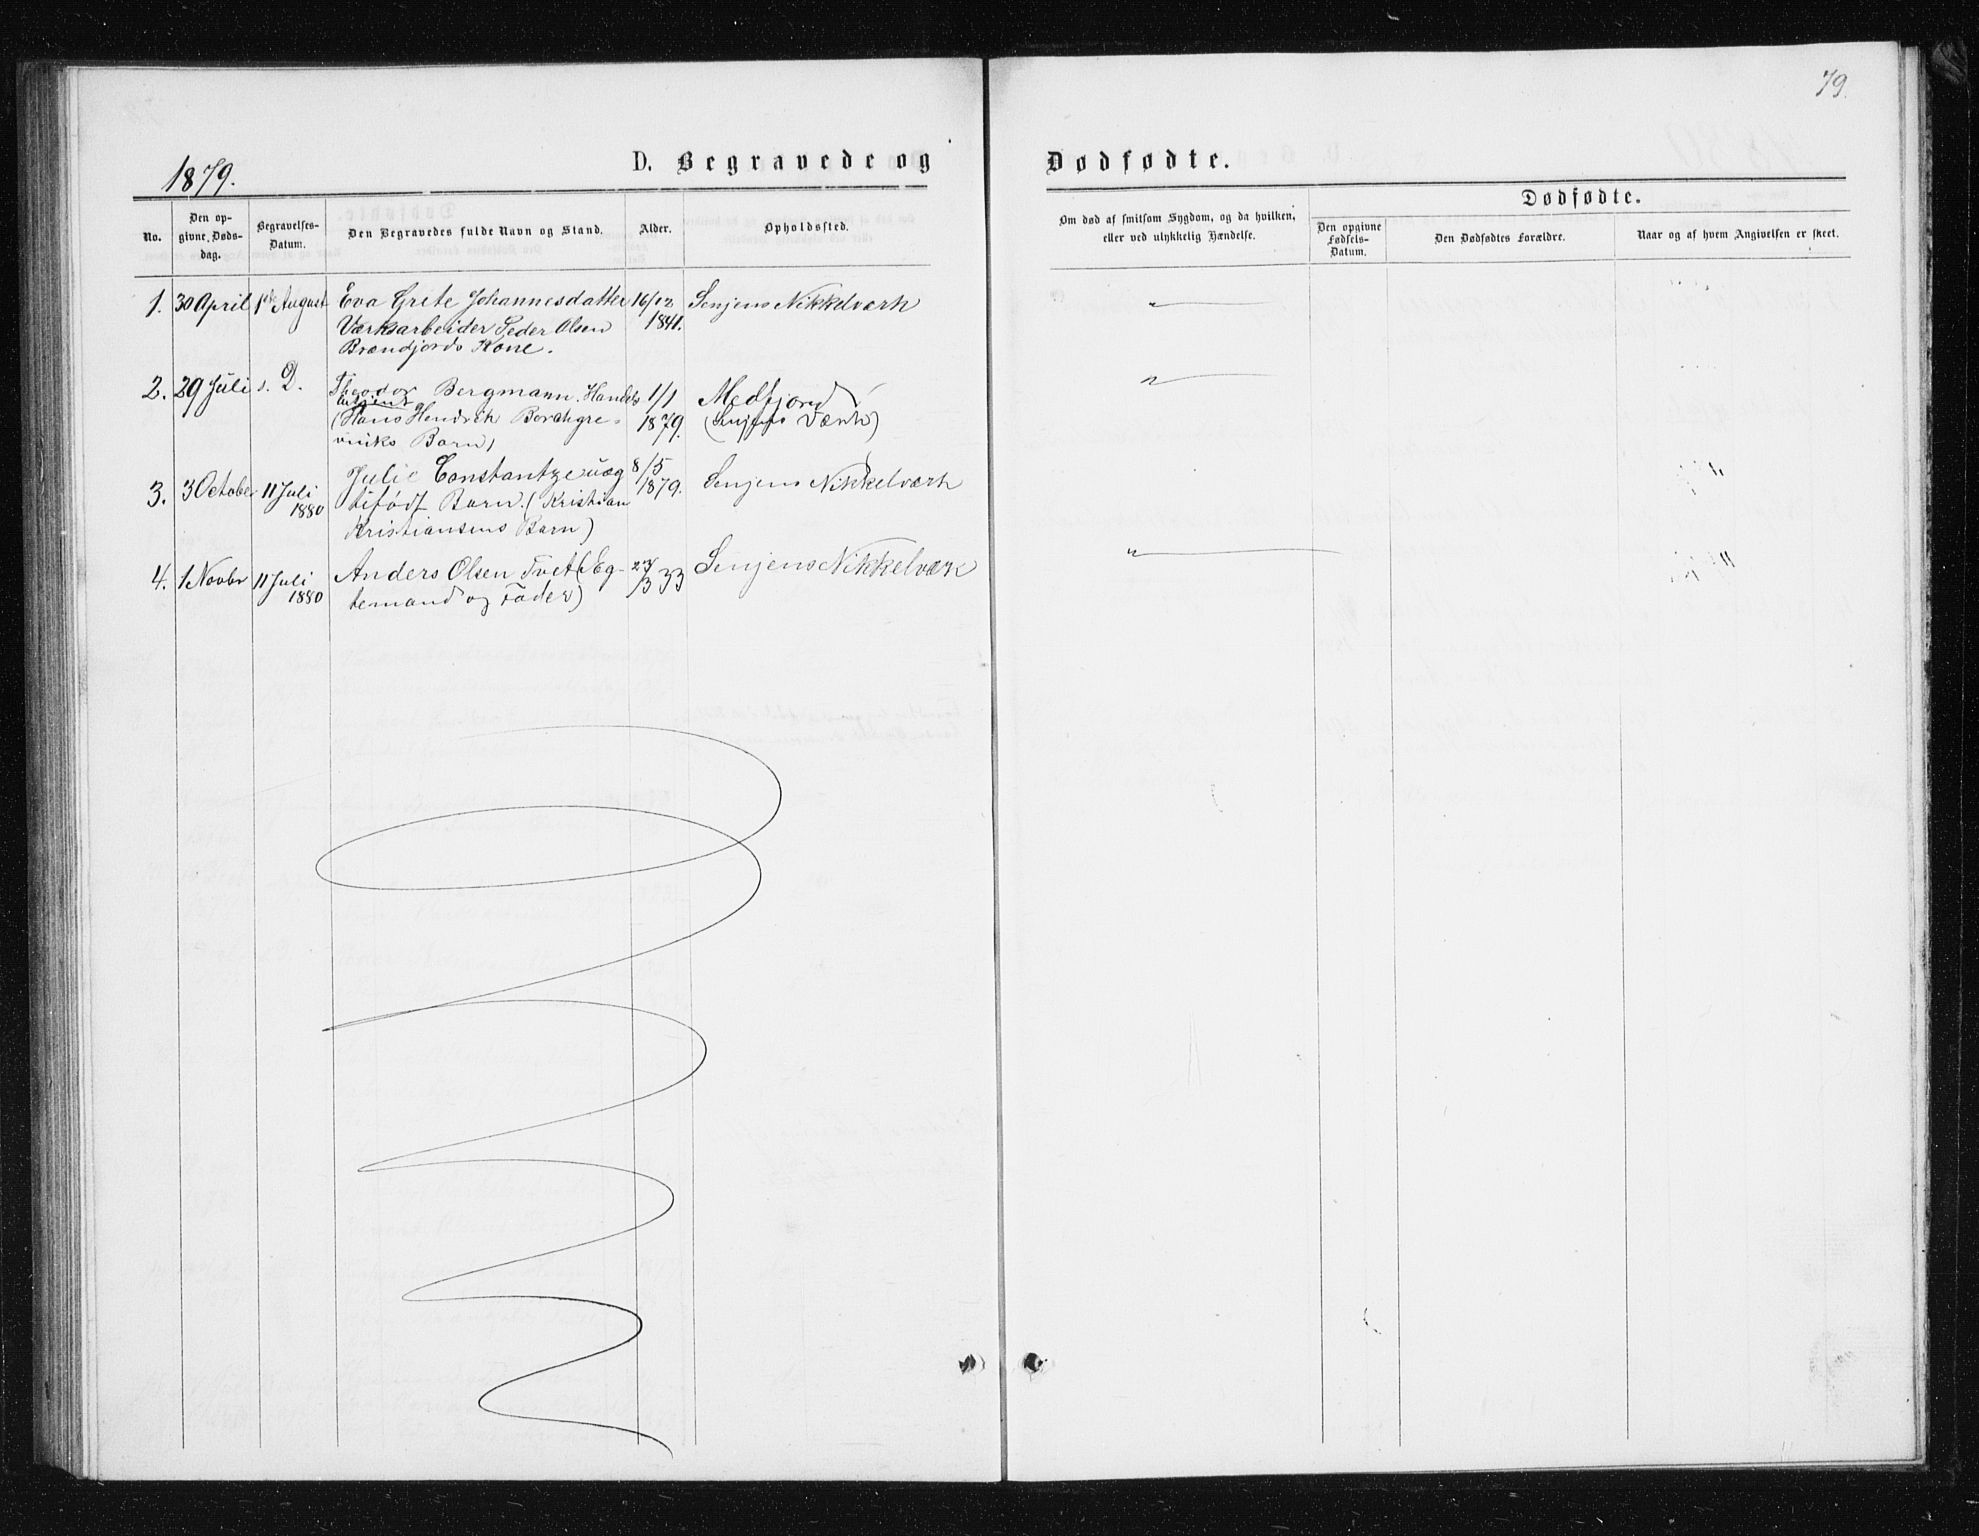 79.
1879.
D. Begravede og Dødfødte.
No.
Den opgivne Dødsdag.
Begravelses-Datum.
Den Begravedes fulde Navn og Stand.
Alder.
Opholdssted.
Om død af smitsom Sygdom, og da hvilken, eller ved ulykkelig Hændelse.
Dødfødte.
Den opgivne Fødsels-Datum.
Den Dødfødtes Forældre.
Naar og af hvem Angivelsen er skeet.
1. 30 April 1ste August Eva Grete Johannesdatter 16/12 Senjens Nikkelværk "
Værksarbeider Peder Olsen 1841.
Brændjords Kone.
2. 29 Juli s. D. Theodor Bergmann. Handels 1/1 Medfjord "
(Hans Hendrik 1879. (Senjens Værk)
Barn)
3. 3 October 11 Juli Julie Constantze uæg 8/5 Senjens Nikkelværk
1880 tefødt Barn. (Kristian 1879.
Kristiansens Barn)
4. 1 Novbr 11 Juli Anders Olsen Tvet (Eg- 23/3 33 Senjens Nikkelværk "
1880 temand og Fader)